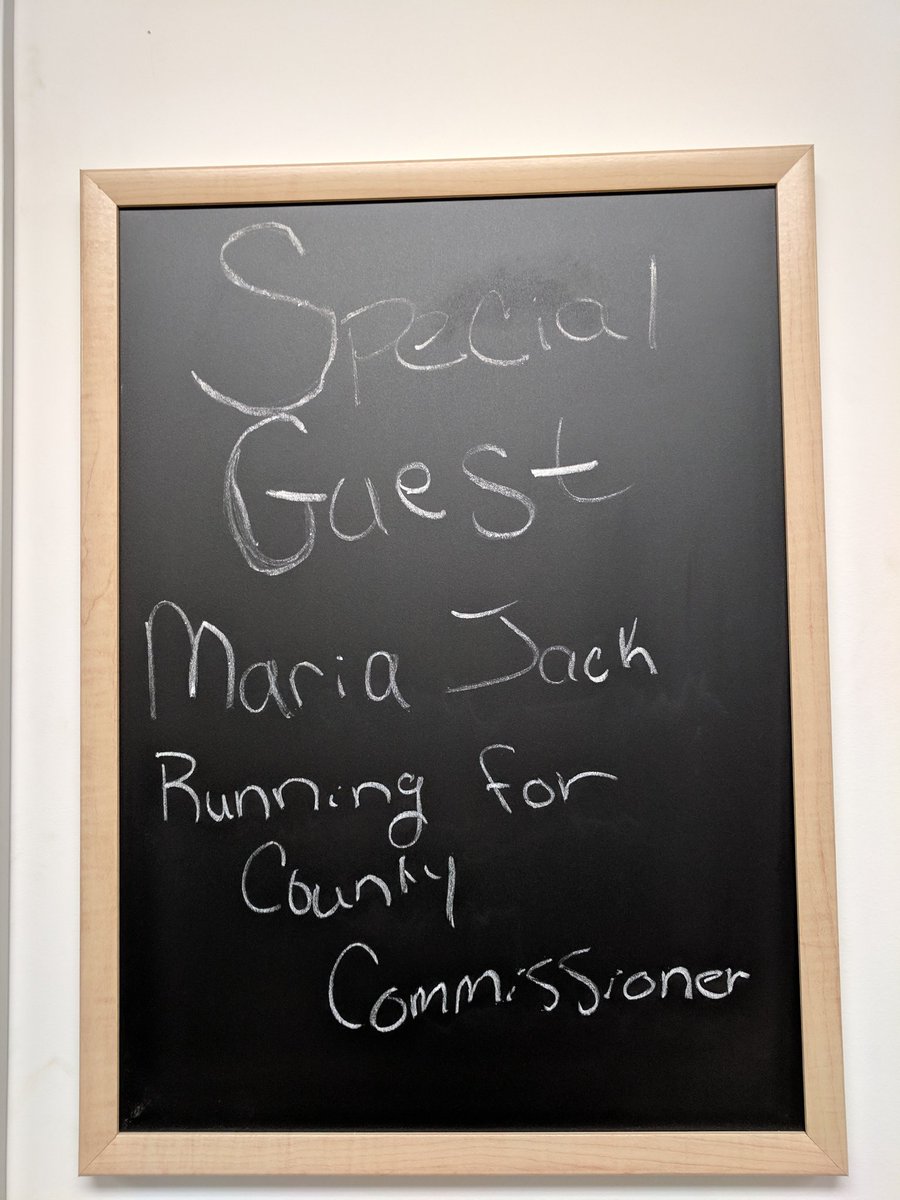 Special
Guest
Maria Jack
Running for
County
Commissioner